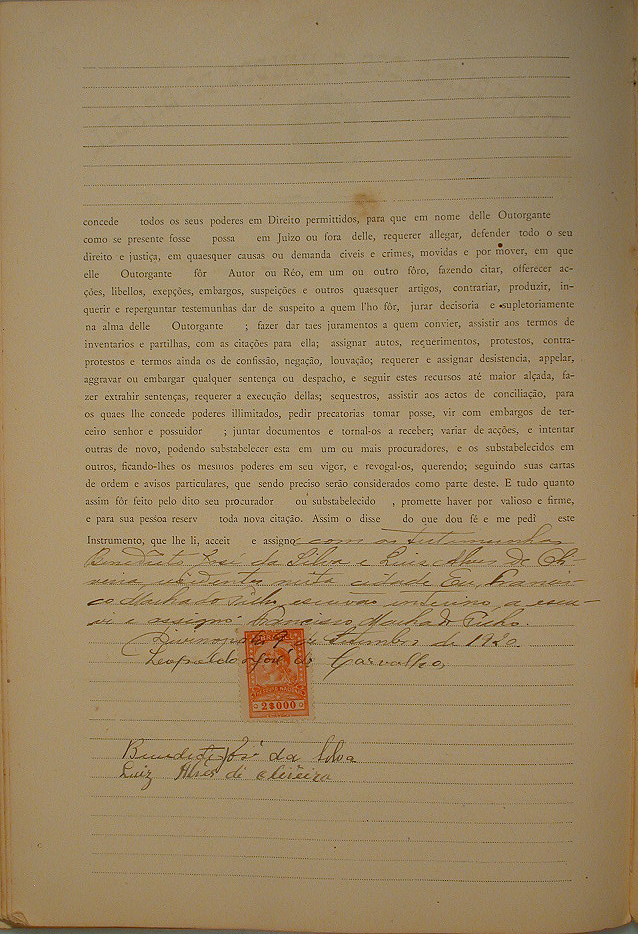 concede todos os seus poderes em Direito permittidos, para que em nome delle Outorgante
como se presente fosse possa em Juizo ou fora delle, requerer allegar, defender todo o seu
direito e justiça, em quaesquer causas ou demanda civeis e crimes, movidas e por mover, em que
elle Outorgante fôr Autor ou Réo, em um ou outro fôro, fazendo citar, offerecer ac-
ções, libellos, exepções, embargos, suspeições e outros quaesquer artigos, contrariar, produzir, in-
querir e reperguntar testemunhas dar de suspeito a quem l'ho fôr, jurar decisoria e supletoriamente
na alma delle Outorgante ; fazer dar taes juramentos a quem convier, assistir aos termos de
inventarios e partilhas, com as citações para ella; assignar autos, requerimentos, protestos, contra-
protestos e termos ainda os de confissão, negação, louvação; requerer e assignar desistencia, appelar,
aggravar ou embargar qualquer sentença ou despacho, e seguir estes recursos até maior alçada, fa-
zer extrahir sentenças, requerer a execução dellas; sequestros, assistir aos actos de conciliação, para
os quaes lhe concede poderes illimitados, pedir precatorias tomar posse, vir com embargos de ter-
ceiro senhor e possuidor ; juntar documentos e tornal-os a receber; variar de acções, e intentar
outras de novo, podendo substabelecer esta em um ou mais procuradores, e os substabelecidos em
outros, ficando-lhes os mesmos poderes em seu vigor, e revogal-os, querendo; seguindo suas cartas
de ordem e avisos particulares, que sendo preciso serão considerados como parte deste. E tudo quanto
assim fôr feito pelo dito seu procurador ou substabelecido , promette haver por valioso e firme,
e para sua pessoa reserv toda nova citação. Assim o disse do que dou fé e me pedi este
Instrumento, que lhe li, acceit e assigno com as testemunhas
Benedicto José da Silva e Luiz Alves de Oli-
veira, residentes nesta cidade Eu, Francis-
co Machado Filho, escrivão interino, a escre-
vi e assigno. Francisco Machado Filho.
9 de Setembro de 19
Leopoldo José de Carvalho
2$000
Benedicto José da Silva
Luiz Alves de Oliveira